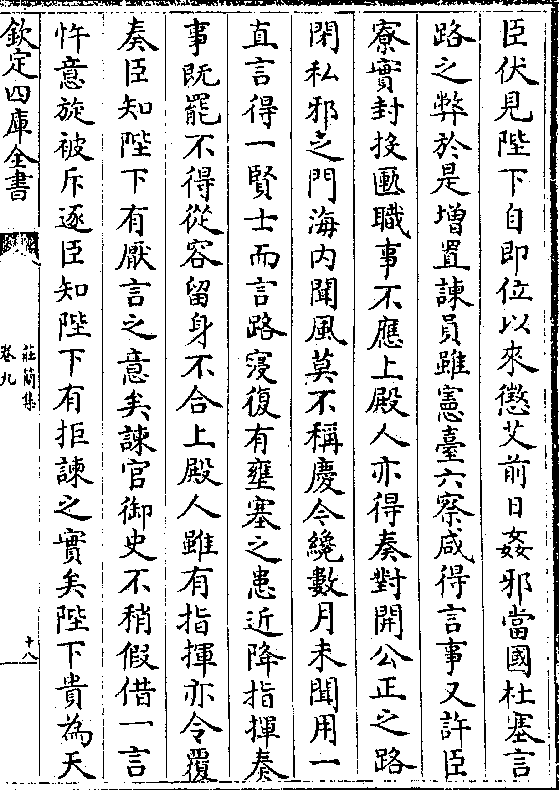 臣伏見陛下自即位以來懲艾前日姦邪當國杜塞言
路之弊於是增置諫員雖憲臺六察咸得言事又許臣
寮實封投匭職事不應上殿人亦得奏對開公正之路
閉私邪之門海内聞風莫不稱慶今纔數月未聞用一
直言得一賢士而言路寖復有壅塞之患近降指揮奏
事既罷不得從容留身不合上殿人雖有指揮亦令覆
奏臣知陛下有厭言之意矣諫官御史不稍假借一言
忤意旋被斥逐臣知陛下有拒諫之實矣陛下貴為天
欽定四庫全書
莊簡集
卷九
十八